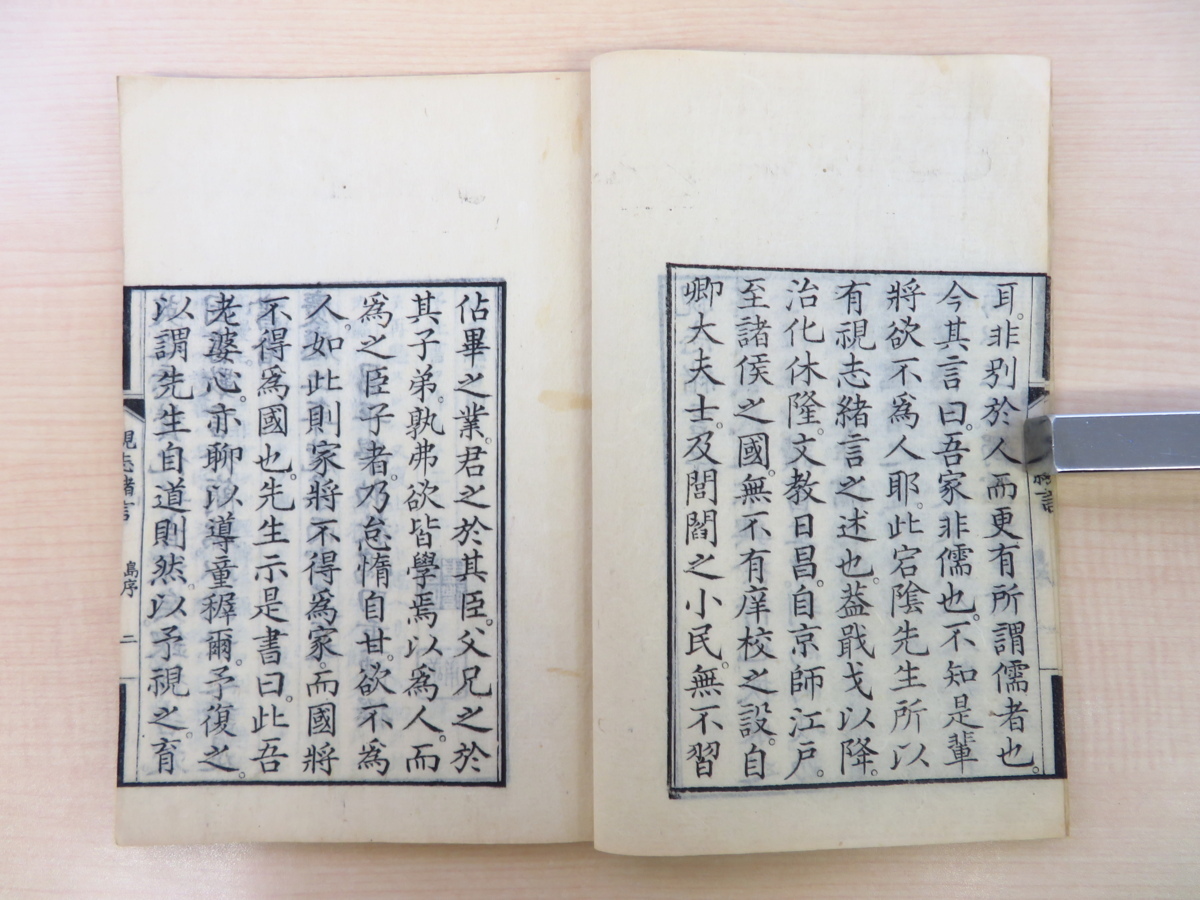 耳。非別於人而更有所謂儒者也。
今其言曰。吾家非儒也。不知是輩
將欲不爲人耶。此宕陰先生所以
有視志緒言之述也。蓋戢戈以降。
治化休隆。文教日昌。自京師江戸。
至諸侯之國。無不有庠校之設。自
卿大夫士。及閭閻之小民。無不習
佔畢之業。君之於其臣。父兄之於
其子弟。孰弗欲皆學焉以爲人。而
爲之臣子者。乃怠惰自甘。欲不為
人。如此則家將不得爲家。而國將
不得爲國也。先生示是書曰。此吾
老婆心。亦聊以導童穉爾。予復之。
以謂先生自道則然。以予視之。育
視志緒言 島序 二
緒言